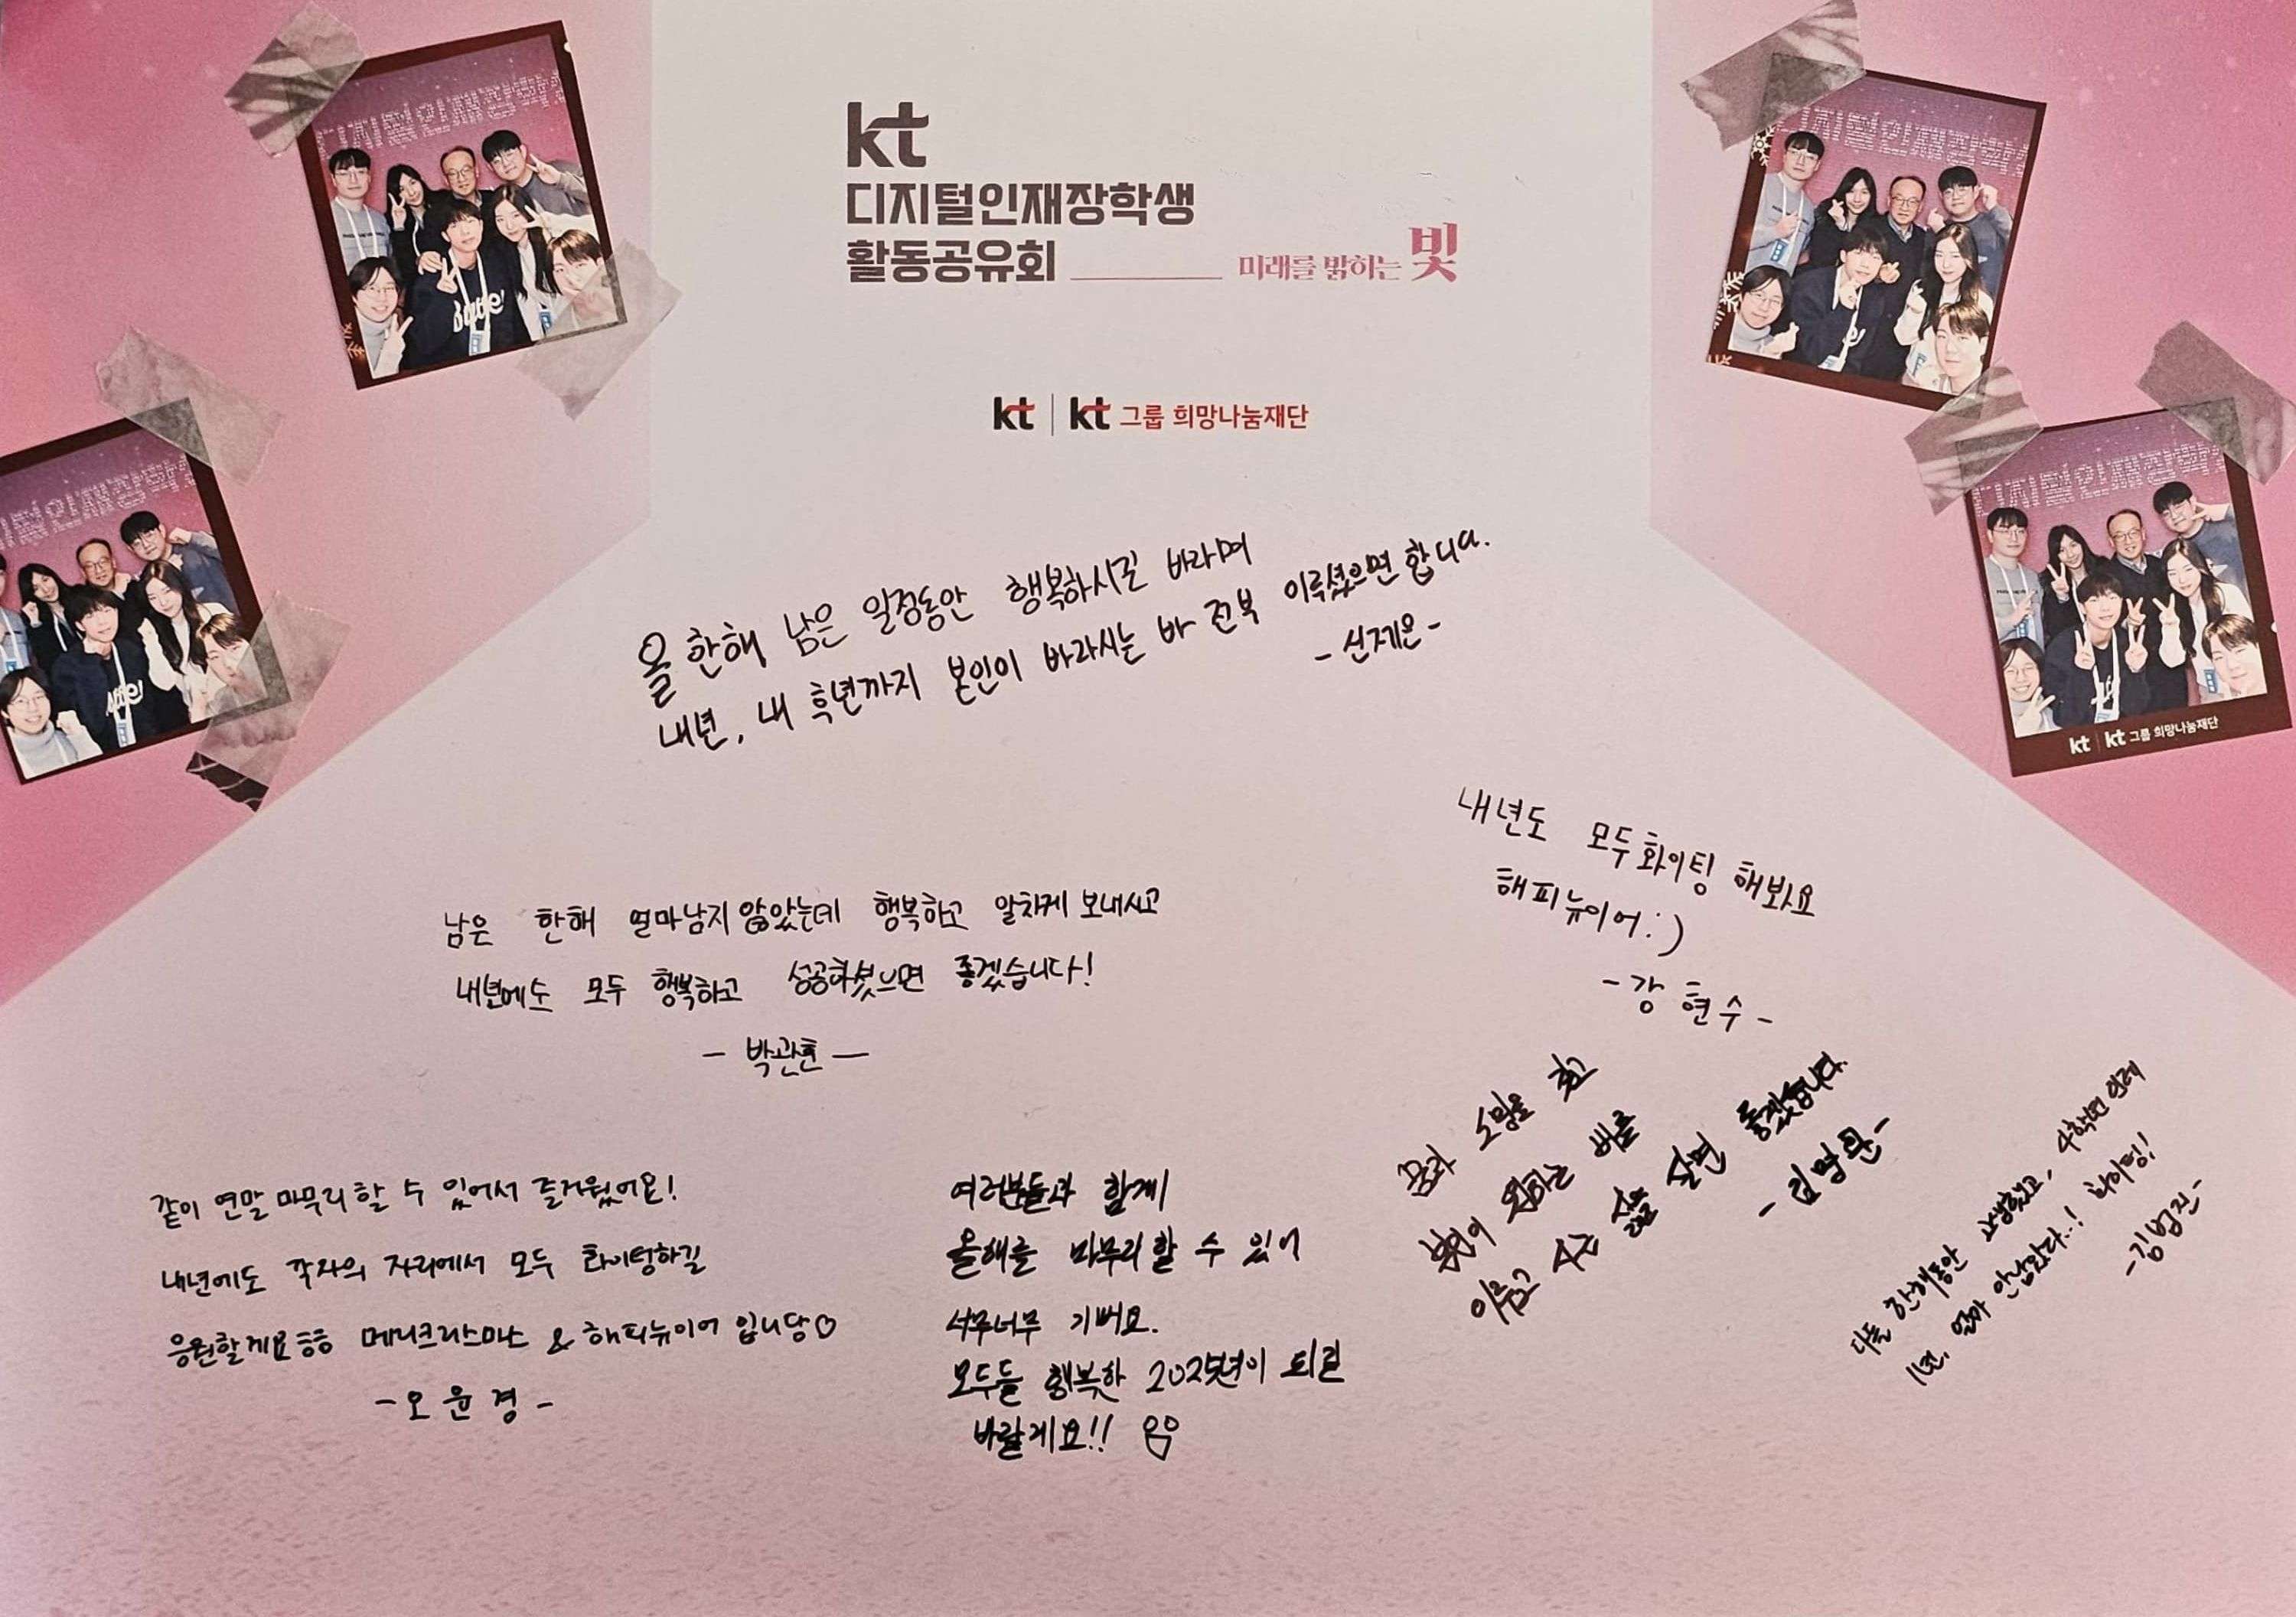 kt
디지털인재장학생
활동공유회
미래를 밝히는 빛
kt | kt 그룹 희망나눔재단
올 한해 남은 일정동안 행복하시길 바라며
내년, 내 후년까지 본인이 바라시는 바 전부 이루셨으면 합니다.
- 신제온 -
내년도 모두 화이팅 해봐요
해피뉴이어 :)
- 강현수 -
남은 한해 얼마남지 않았는데 행복하고 알차게 보내시고
내년에도 모두 행복하고 성공하셨으면 좋겠습니다!
- 박관 -
꿈과 소망을
본인이 원하는 바를
이루고 사는 삶을 살면 좋겠습니다.
다들 한해동안 고생했고, 4학년 인데
1년, 얼마 안남았다..! 화이팅!
- 김범진 -
같이 연말 마무리 할 수 있어서 즐거웠어요!
내년에도 각자의 자리에서 모두 화이팅하길
응원할게요ㅎㅎ 메리크리스마스 & 해피뉴이어 입니당♡
- 오윤경 -
여러분들과 함께
올해를 마무리 할 수 있어
너무너무 기뻐요.
모두들 행복한 2025년이 되길
바랄게요!!
디지털인재장학
디지털인재장학
디지털인재장학
디지털인재장학
kt | kt 그룹 희망나눔재단